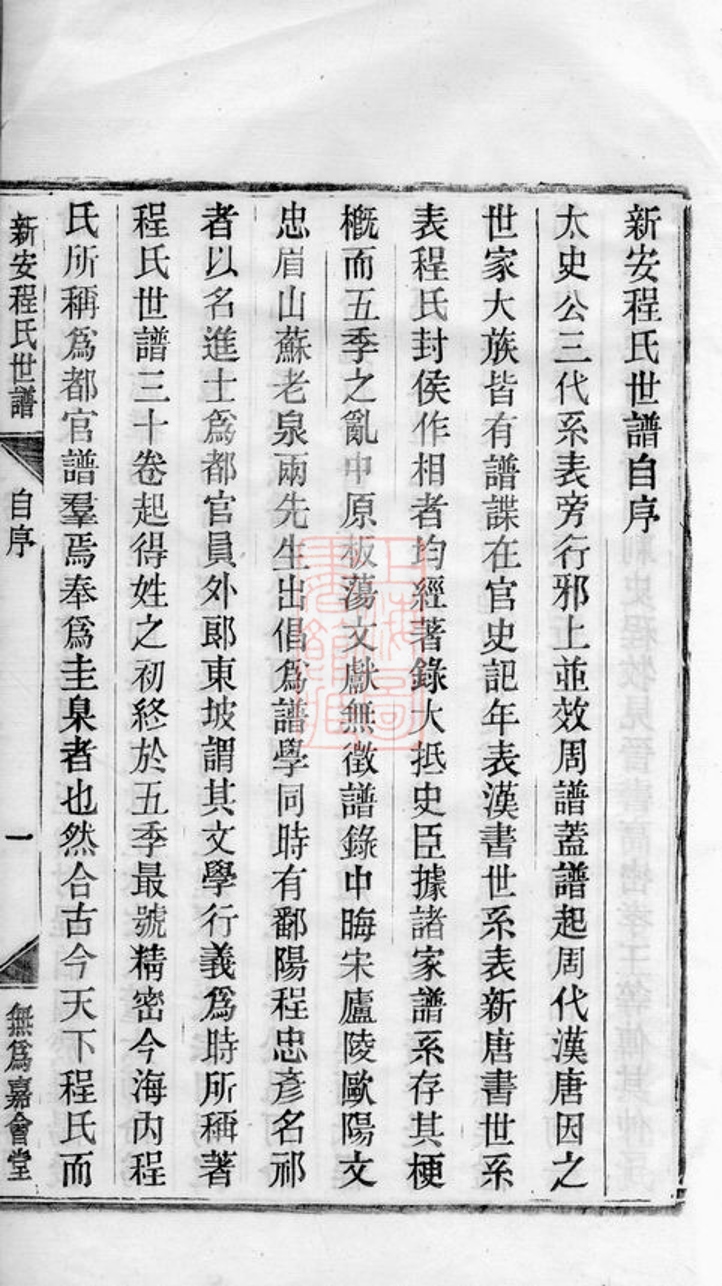 新安程氏世譜自序
太史公三代系表旁行邪上並效周譜蓋譜起周代漢唐因之
世家大族皆有譜諜在官史記年表漢書世系表新唐書世系
表程氏封侯作相者均經著錄大抵史臣據諸家譜系存其梗
槪而五季之亂中原板蕩文獻無徵譜錄中晦宋廬陵歐陽文
忠眉山蘇老泉兩先生出倡爲譜學同時有鄱陽程忠彥名祁
者以名進士爲都官員外郎東坡謂其文學行義爲時所稱著
程氏世譜三十卷起得姓之初終於五季最號精密今海內程
氏所稱爲都官譜羣焉奉爲圭臬者也然合古今天下程氏而
新安程氏世譜
自序
一
無爲嘉會堂
上海圖書館藏